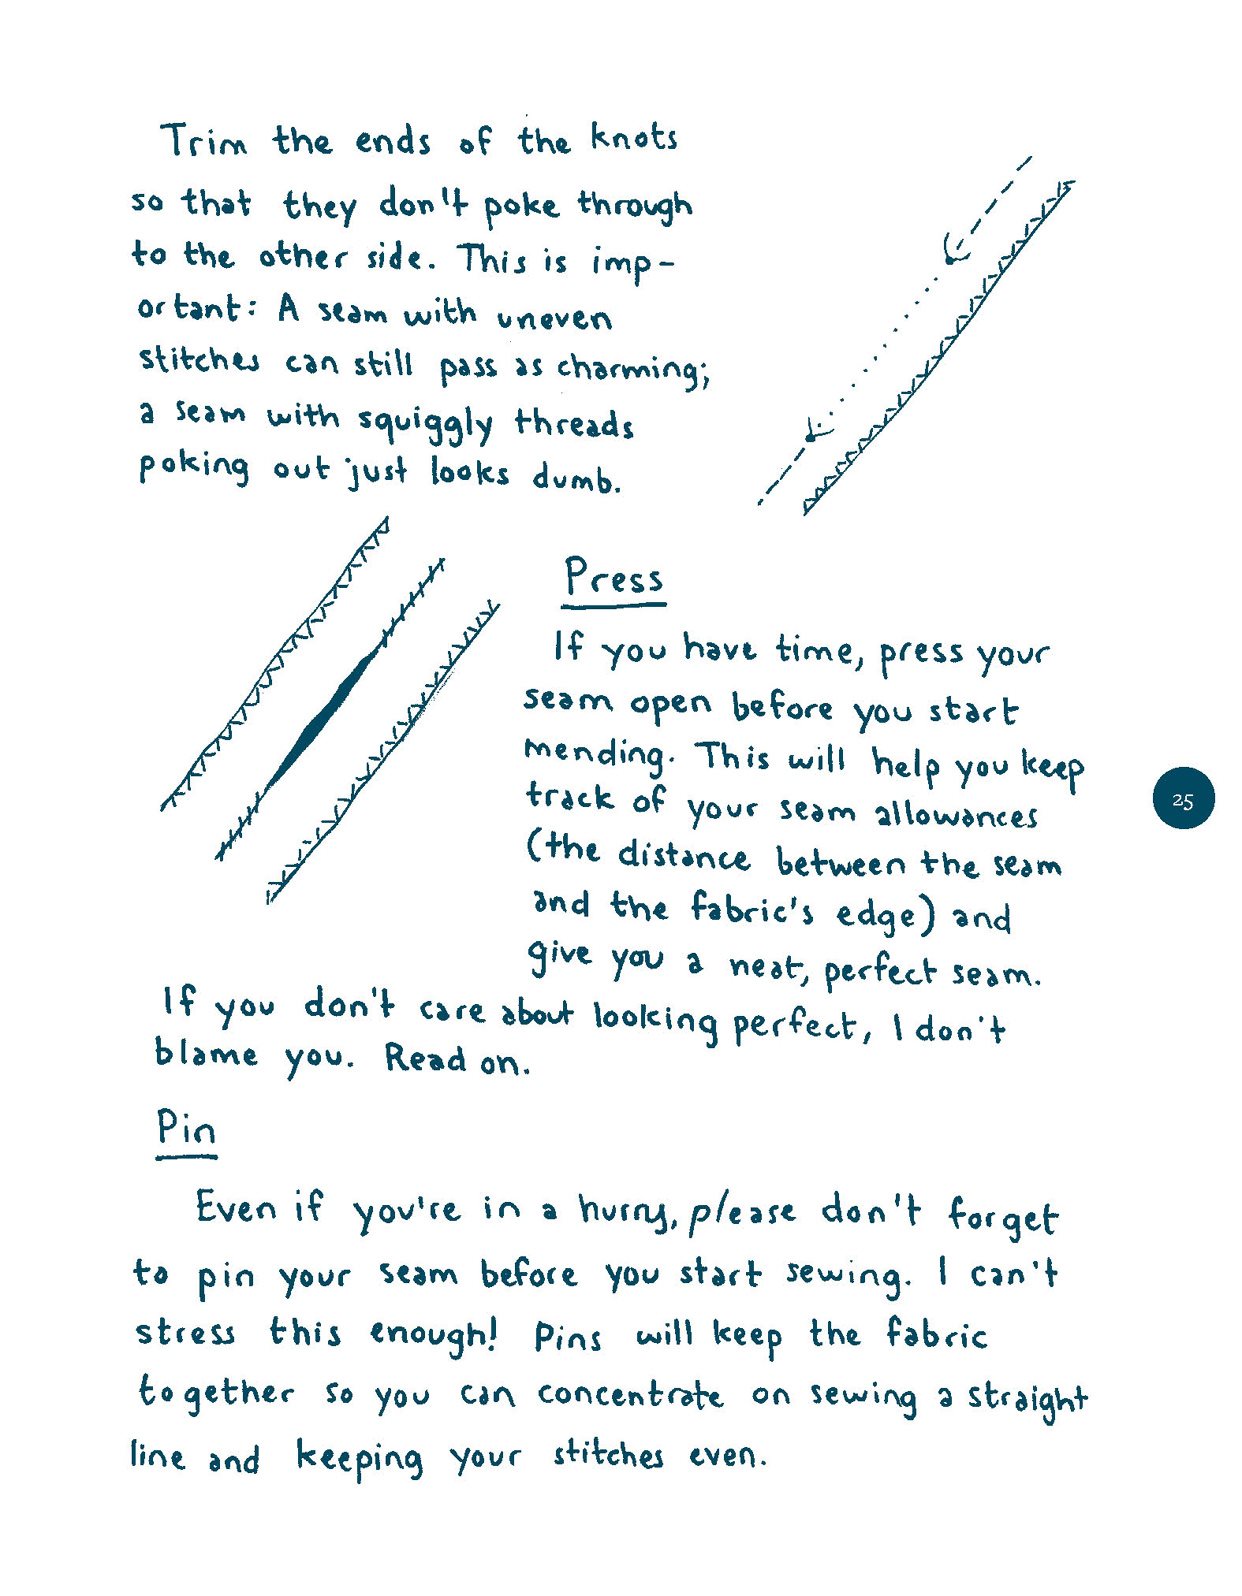 Trim the ends of the knots
so that they don't poke through
to the other side. This is imp-
ortant: A seam with uneven
stitches can still pass as charming;
a seam with squiggly threads
poking out just looks dumb.
Press
If you have time, press your
seam open before you start
mending. This will help you keep
track of your seam allowances
(the distance between the seam
and the fabric's edge) and
give you a neat, perfect seam.
If you don't care about looking perfect, I don't
blame you. Read on.
25
Pin
Even if you're in a hurry, please don't forget
to pin your seam before you start sewing. I can't
stress this enough! Pins will keep the fabric
together so you can concentrate on sewing a straight
line and keeping your stitches even.